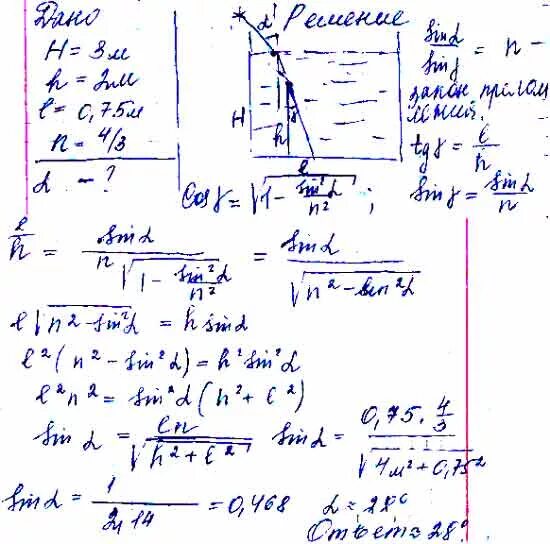 Дано
H = 3м
h = 2м
l = 0,75м
n = 4/3
α - ?
Решение
α
H
h
γ
l
sinα / sinγ = n -
закон преломления.
tgγ = l/h
Cosγ = √(1 - sin²α/n²) ; sinγ = sinα/n
l/h = sinα / (n √(1 - sin²α/n²)) = sinα / √(n² - sin²α)
l √(n² - sin²α) = h sinα
l² (n² - sin²α) = h² sin²α
l² n² = sin²α (h² + l²)
sinα = ln / √(h² + l²) sinα = 0,75 · 4/3 / √(4м² + 0,75²)
sinα = 1 / 2,14 = 0,468 α = 28°
Ответ ≈ 28°